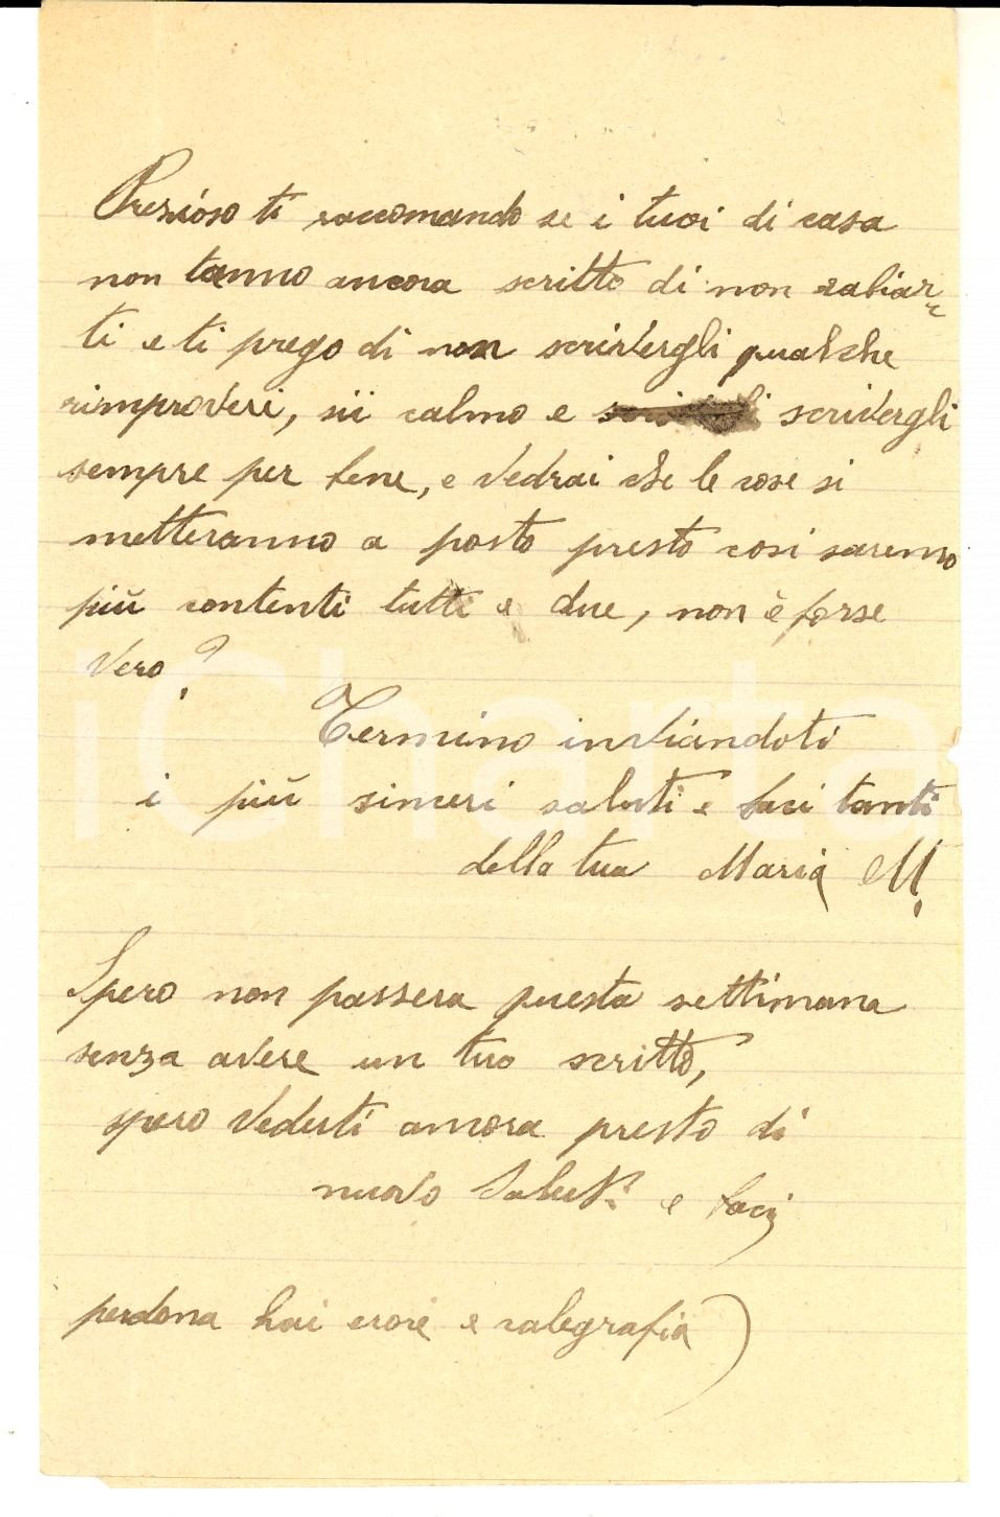 Prezioso ti raccomando se i tuoi di casa
non tanno ancora scritto di non rabiar=
ti e ti prego di non scrivergli qualche
rimproveri, sii calmo e scrivergli
sempre per bene, e vedrai che le cose si
metteranno a posto presto cosi saremo
più contenti tutti e due, non è forse
vero?
Termino inviandoti
i più sinceri saluti e baci tanti
della tua Maria M.
Spero non passera questa settimana
senza avere un tuo scritto,
spero vederti ancora presto di
nuovo Saluti e baci
perdona hai erore e calegrafia)
iCharta